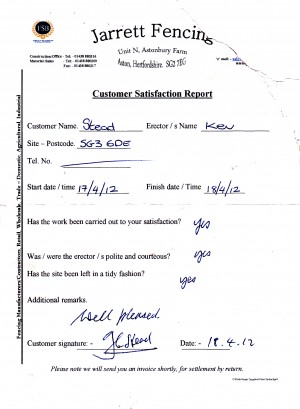 FSB
Jarrett Fencing
Unit N, Astonbury Farm
Aston, Hertfordshire. SG2 7EG
Construction Office - Tel: - 01438
Material Sales - Tel: - 01438
Fax: - 01438
Customer Satisfaction Report
Customer Name. Stead Erector / s Name Kev
Site – Postcode. SG3 6DE
Tel. No.
Start date / time 17/4/12 Finish date / Time 18/4/12
Has the work been carried out to your satisfaction? yes
Was / were the erector / s polite and courteous? yes
Has the site been left in a tidy fashion? yes
Additional remarks.
Well pleased
Customer signature: - Stead Date: - 18.4.12
Please note we will send you an invoice shortly, for settlement by return.
Fencing Manufacturers/Contractors, Retail, Wholesale, Trade - Domestic, Agricultural, Industrial